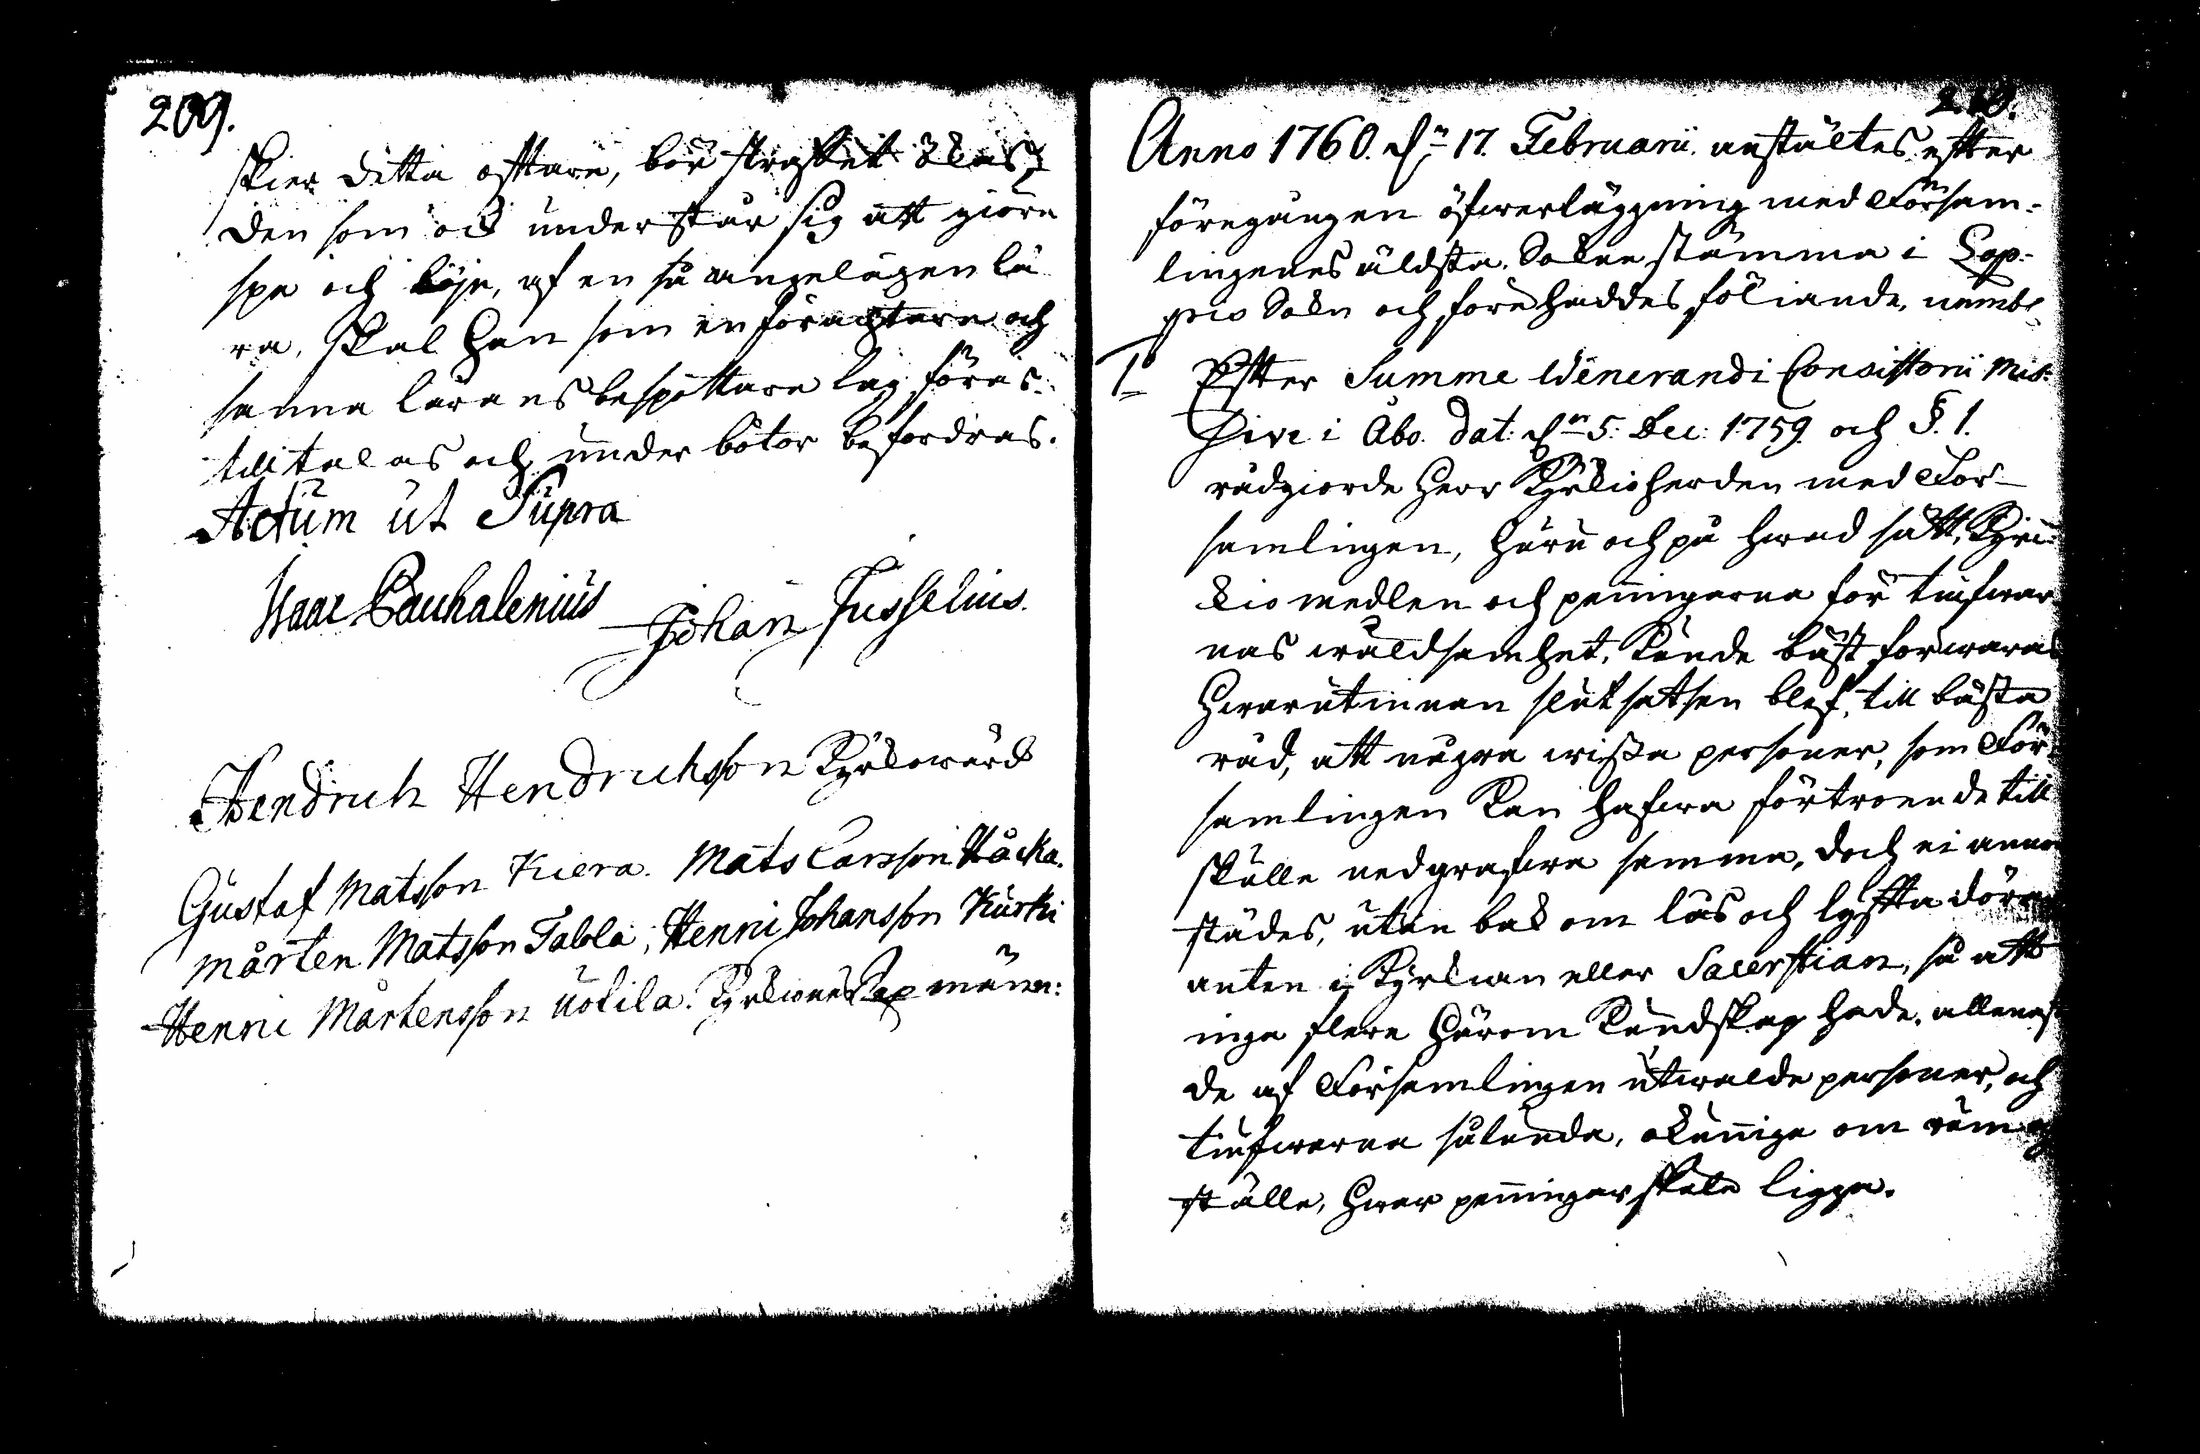 209.
skier detta oftare, bör straffet ökas,
den som ock understår sig att giöra
spe och löje, af en så angelägen lä
ra, skal han som en föracktare och
sanna lärans bespottare lag föras:
till talas och under böter befordras.
Actum ut Supra
Isaac Pauhalenius Johan Fusselius.
Hendrich Hendrichsson Kyrkowärd
Gustaf Matsson Kiera. Mats Larsson Håcka.
Mårten Matsson Tabla, Henric Johansson Kurki
Henric Mårtensson Uotila. Kyrkiones Sex männ:
210.
Anno 1760. dn 17. Februarii anstältes efter
föregången öfwerläggning med Försam-
lingenes äldsta. Sokne stämma i Lop-
pis Sokn och förehaddes föliande, nembl
1o Efter Summe Wenerandi Consistorii Mis-
sive i Åbo. dat: dn 5. Dec: 1759. och §. 1.
rådgiorde Herr Kyrkioherden med För-
samlingen, huru och på hwad sätt, Kyr-
kio medlen och penningarna för tiufwar
nas wåldsamhet, kunde bäst förwaras
Hwarutinnan slutsatsen blef, till bästa
råd, att någre wissa personer, som För-
samlingen kan hafwa förtroende till
skulle nedgrafwa samma, doch ei annor
städes, utan bak om lås och lyckta dörar
anten i Kyrkian eller Sacerstian, så att
inga flere härom kundskap hade, allenast
de af Församlingen utwalde personer, och
tiufwarna sålunda, okunnige om rum och
ställe, hwar penningar skola ligga.